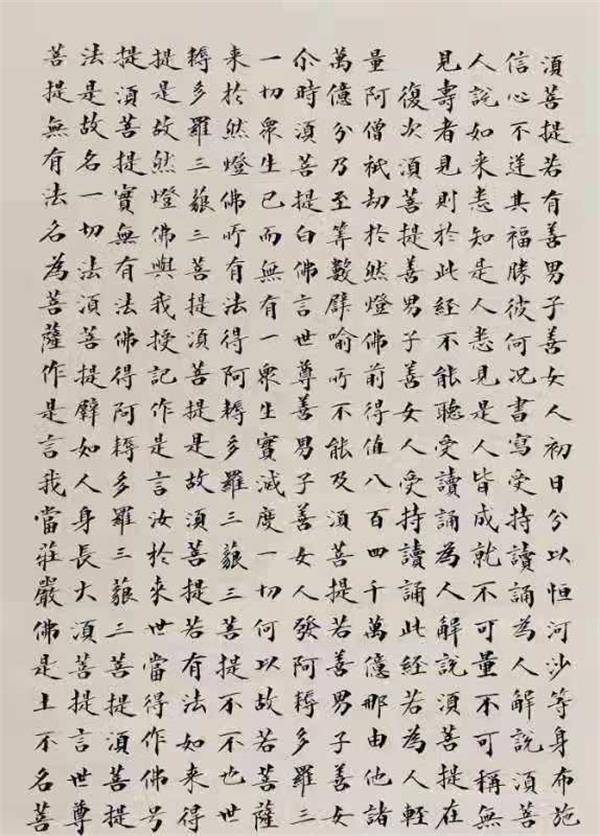 須菩提若有善男子善女人初日分以恒河沙等身布施
信心不逆其福勝彼何況書寫受持讀誦為人解說須菩
人說如来悉知是人悉見是人皆成就不可量不可稱無
見壽者見則於此經不能聽受讀誦為人解說須菩提在
復次須菩提善男子善女人受持讀誦此經若為人輕
量阿僧祇劫於然燈佛前得值八百四千萬億那由他諸
萬億分乃至筭數譬喻所不能及須菩提若善男子善女
尒時須菩提白佛言世尊善男子善女人發阿耨多羅三
一切衆生已而無有一衆生實滅度一切何以故若菩薩
来於然燈佛所有法得阿耨多羅三藐三菩提不不也世
耨多羅三藐三菩提須菩提是故須菩提若有法如来得
提是故然燈佛與我授記作是言汝於来世當得作佛号
提須菩提實無有法佛得阿耨多羅三藐三菩提須菩提
法是故名一切法須菩提譬如人身長大須菩提言世尊
菩提無有法名為菩薩作是言我當莊嚴佛是土不名菩